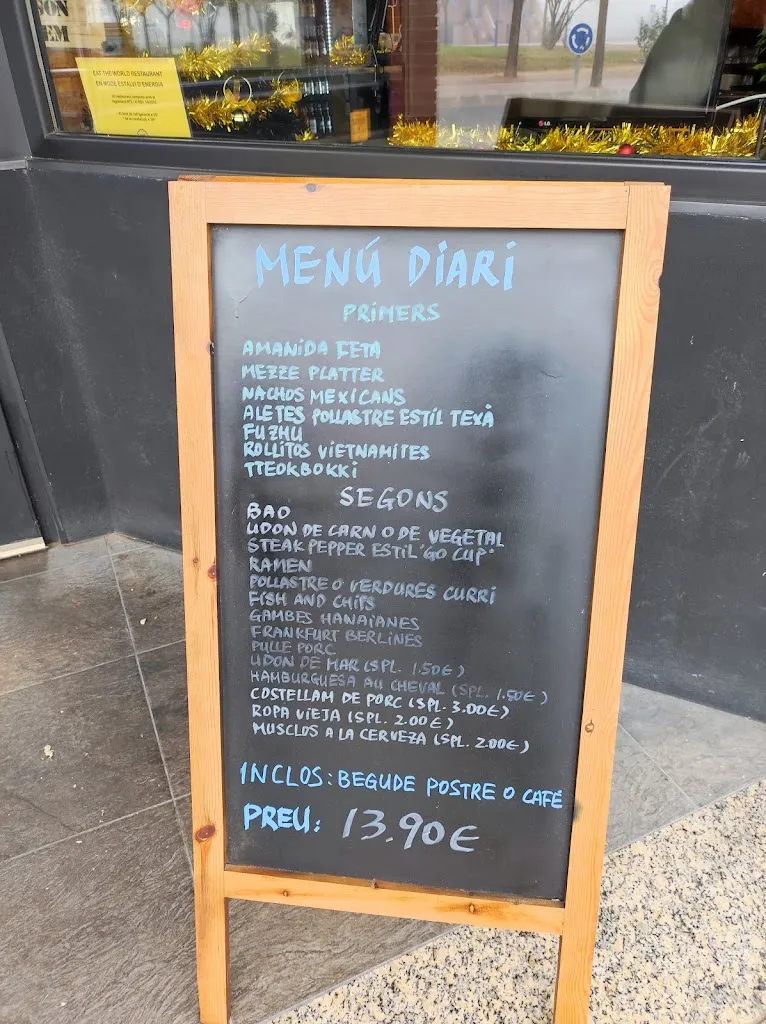 EAT THE WORLD RESTAURANT
MENÚ DIARI
PRIMERS
AMANIDA FETA
MEZZE PLATTER
NACHOS MEXICANS
ALETES POLLASTRE ESTIL TEXÀ
FUZHU
ROLLITOS VIETNAMITES
TTEOKBOKKI
SEGONS
BAO
UDON DE CARN O DE VEGETAL
STEAK PEPPER ESTIL "GO CUP"
RAMEN
POLLASTRE O VERDURES CURRI
FISH AND CHIPS
GAMBES HANAIANES
FRANKFURT BERLINES
PULLE PORC
UDON DE MAR (SPL. 1.50€)
HAMBURGUESA AU CHEVAL (SPL. 1.50€)
COSTELLAM DE PORC (SPL. 3.00€)
ROPA VIEJA (SPL. 2.00€)
MUSCLOS A LA CERVEZA (SPL. 2.00€)
INCLOS: BEGUDE POSTRE O CAFÉ
PREU: 13.90€
LG